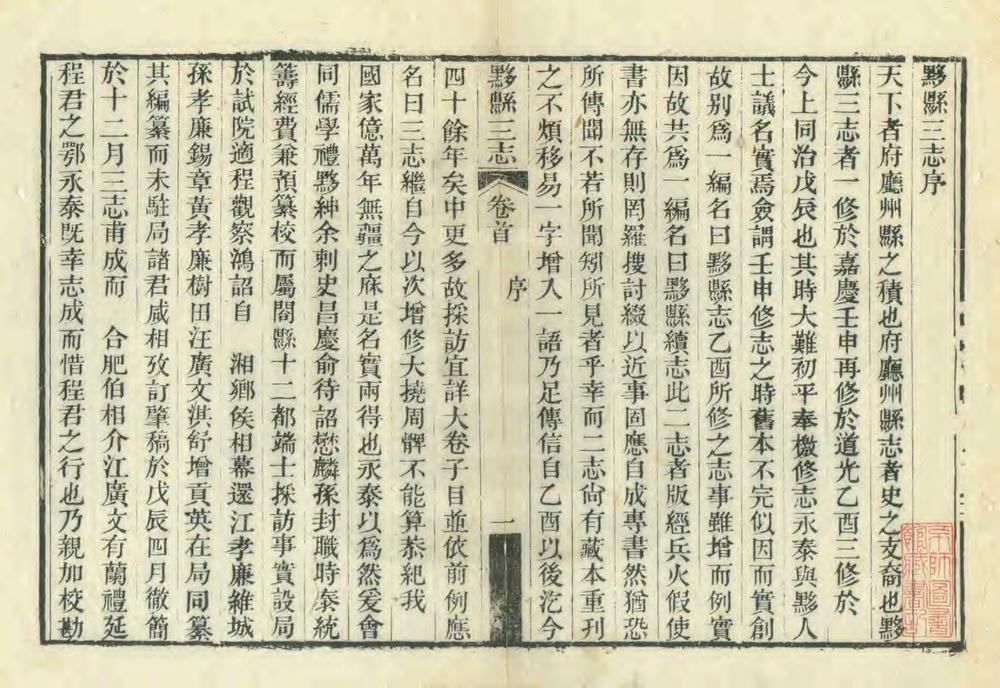 黟縣三志序
天下者府廳州縣之積也府廳州縣志者史之支裔也黟
縣三志者一修於嘉慶壬申再修於道光乙酉三修於
今上同治戊辰也其時大難初平奉檄修志永泰與黟人
士議名實焉僉謂壬申修志之時舊本不完似因而實創
故别爲一編名曰黟縣志乙酉所修之志事雖增而例實
因故共爲一編名曰黟縣續志此二志者版經兵火假使
書亦無存則罔羅搜討綴以近事固應自成專書然猶恐
所傳聞不若所聞矧所見者乎幸而二志尙有藏本重刊
之不煩移易一字增入一語乃足傳信自乙酉以後迄今
黟縣三志
卷首
序
一
四十餘年矣中更多故採訪宜詳大卷子目並依前例應
名曰三志繼自今以次增修大撓周髀不能算恭紀我
國家億萬年無疆之庥是名實兩得也永泰以爲然爰會
同儒學禮黟紳余刺史昌慶俞待詔懋麟孫封職時泰統
籌經費兼預纂校而屬閤縣十二都端士採訪事實設局
於試院適程觀察鴻詔自 湘鄉侯相幕還江孝廉維城
孫孝廉錫章黃孝廉樹田汪廣文淇舒增貢英在局同纂
其編纂而未駐局諸君咸相攷訂肇稿於戊辰四月徹簡
於十二月三志甫成而 合肥伯相介江廣文有蘭禮延
程君之鄂永泰旣幸志成而惜程君之行也乃親加校勘